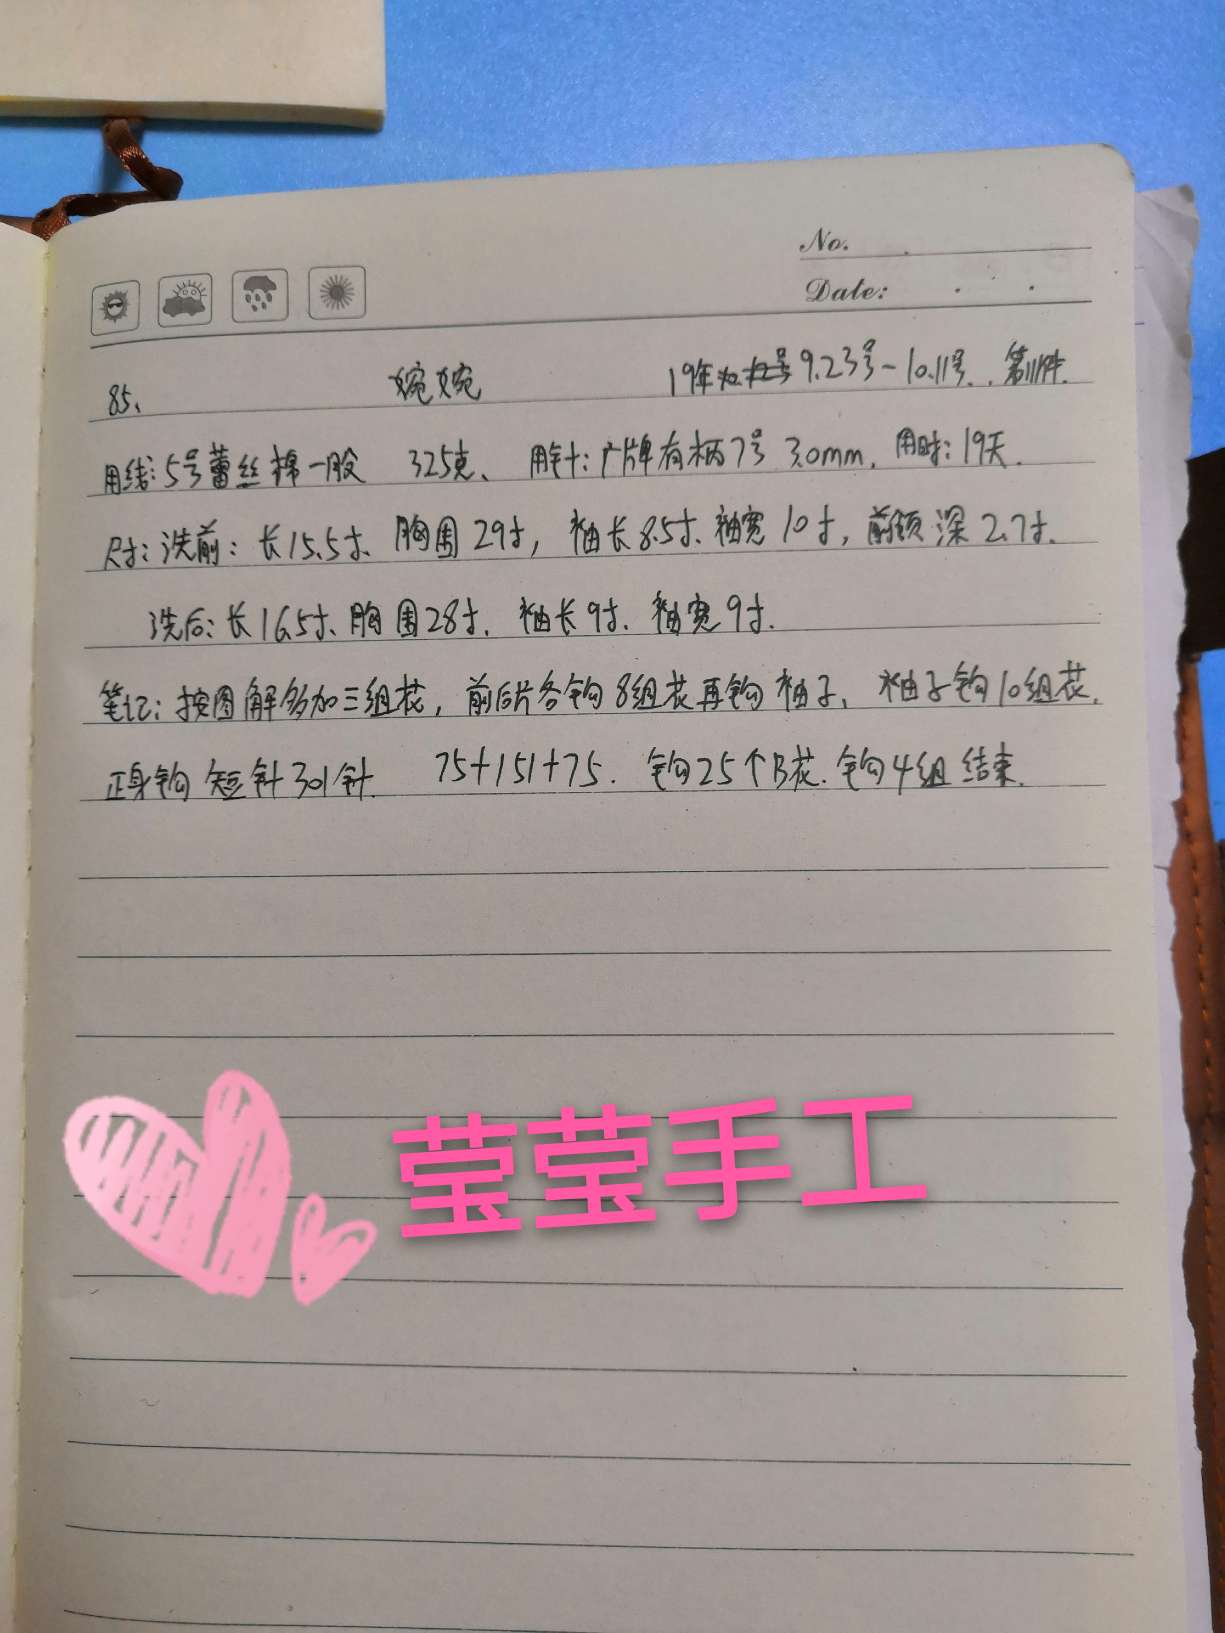 No.
Date:
85、 婉婉 19年 9.23号-10.11号. 第11件.
用线:5号蕾丝棉一股 325克、 用针:广牌有柄7号 3.0mm. 用时:19天.
尺寸:洗前:长15.5寸、胸围29寸, 袖长8.5寸、袖宽10寸, 前领深2.7寸.
洗后:长16.5寸、胸围28寸. 袖长9寸. 袖宽9寸.
笔记:按图解多加三组花, 前后片各钩8组花再钩袖子、袖子钩10组花.
正身钩短针301针. 75+151+75. 钩25个B花.钩4组结束.
莹莹手工